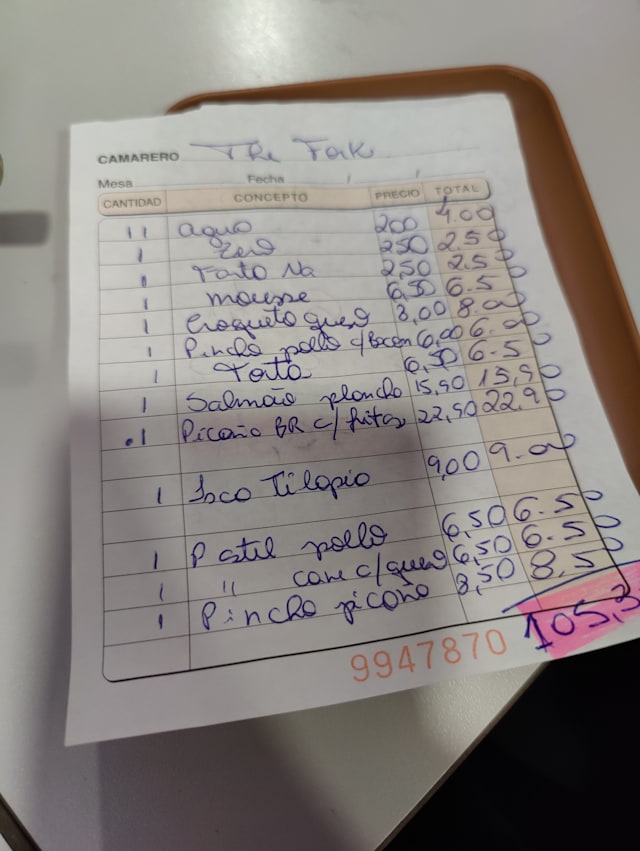 CAMARERO The Fork
Mesa Fecha / /
CANTIDAD CONCEPTO PRECIO TOTAL
11 agua 200 4.00
1 Zero 250 2.50
1 2,50 2.50
1 mousse 6,50 6.50
1 Croqueta queso 8,00 8.00
1 Pincho pollo c/Bacon 6,00 6.00
1 Torta 6,50 6.50
1 Salmão plancha 15,90 15,90
.1 Picaña BR c/ fritas 22,90 22,90
1 Isca Tilapia 9,00 9.00
1 Pastel pollo 6,50 6.50
1 " carne c/queso 6,50 6.50
1 Pincho picaña 8,50 8.50
9947870 105,3